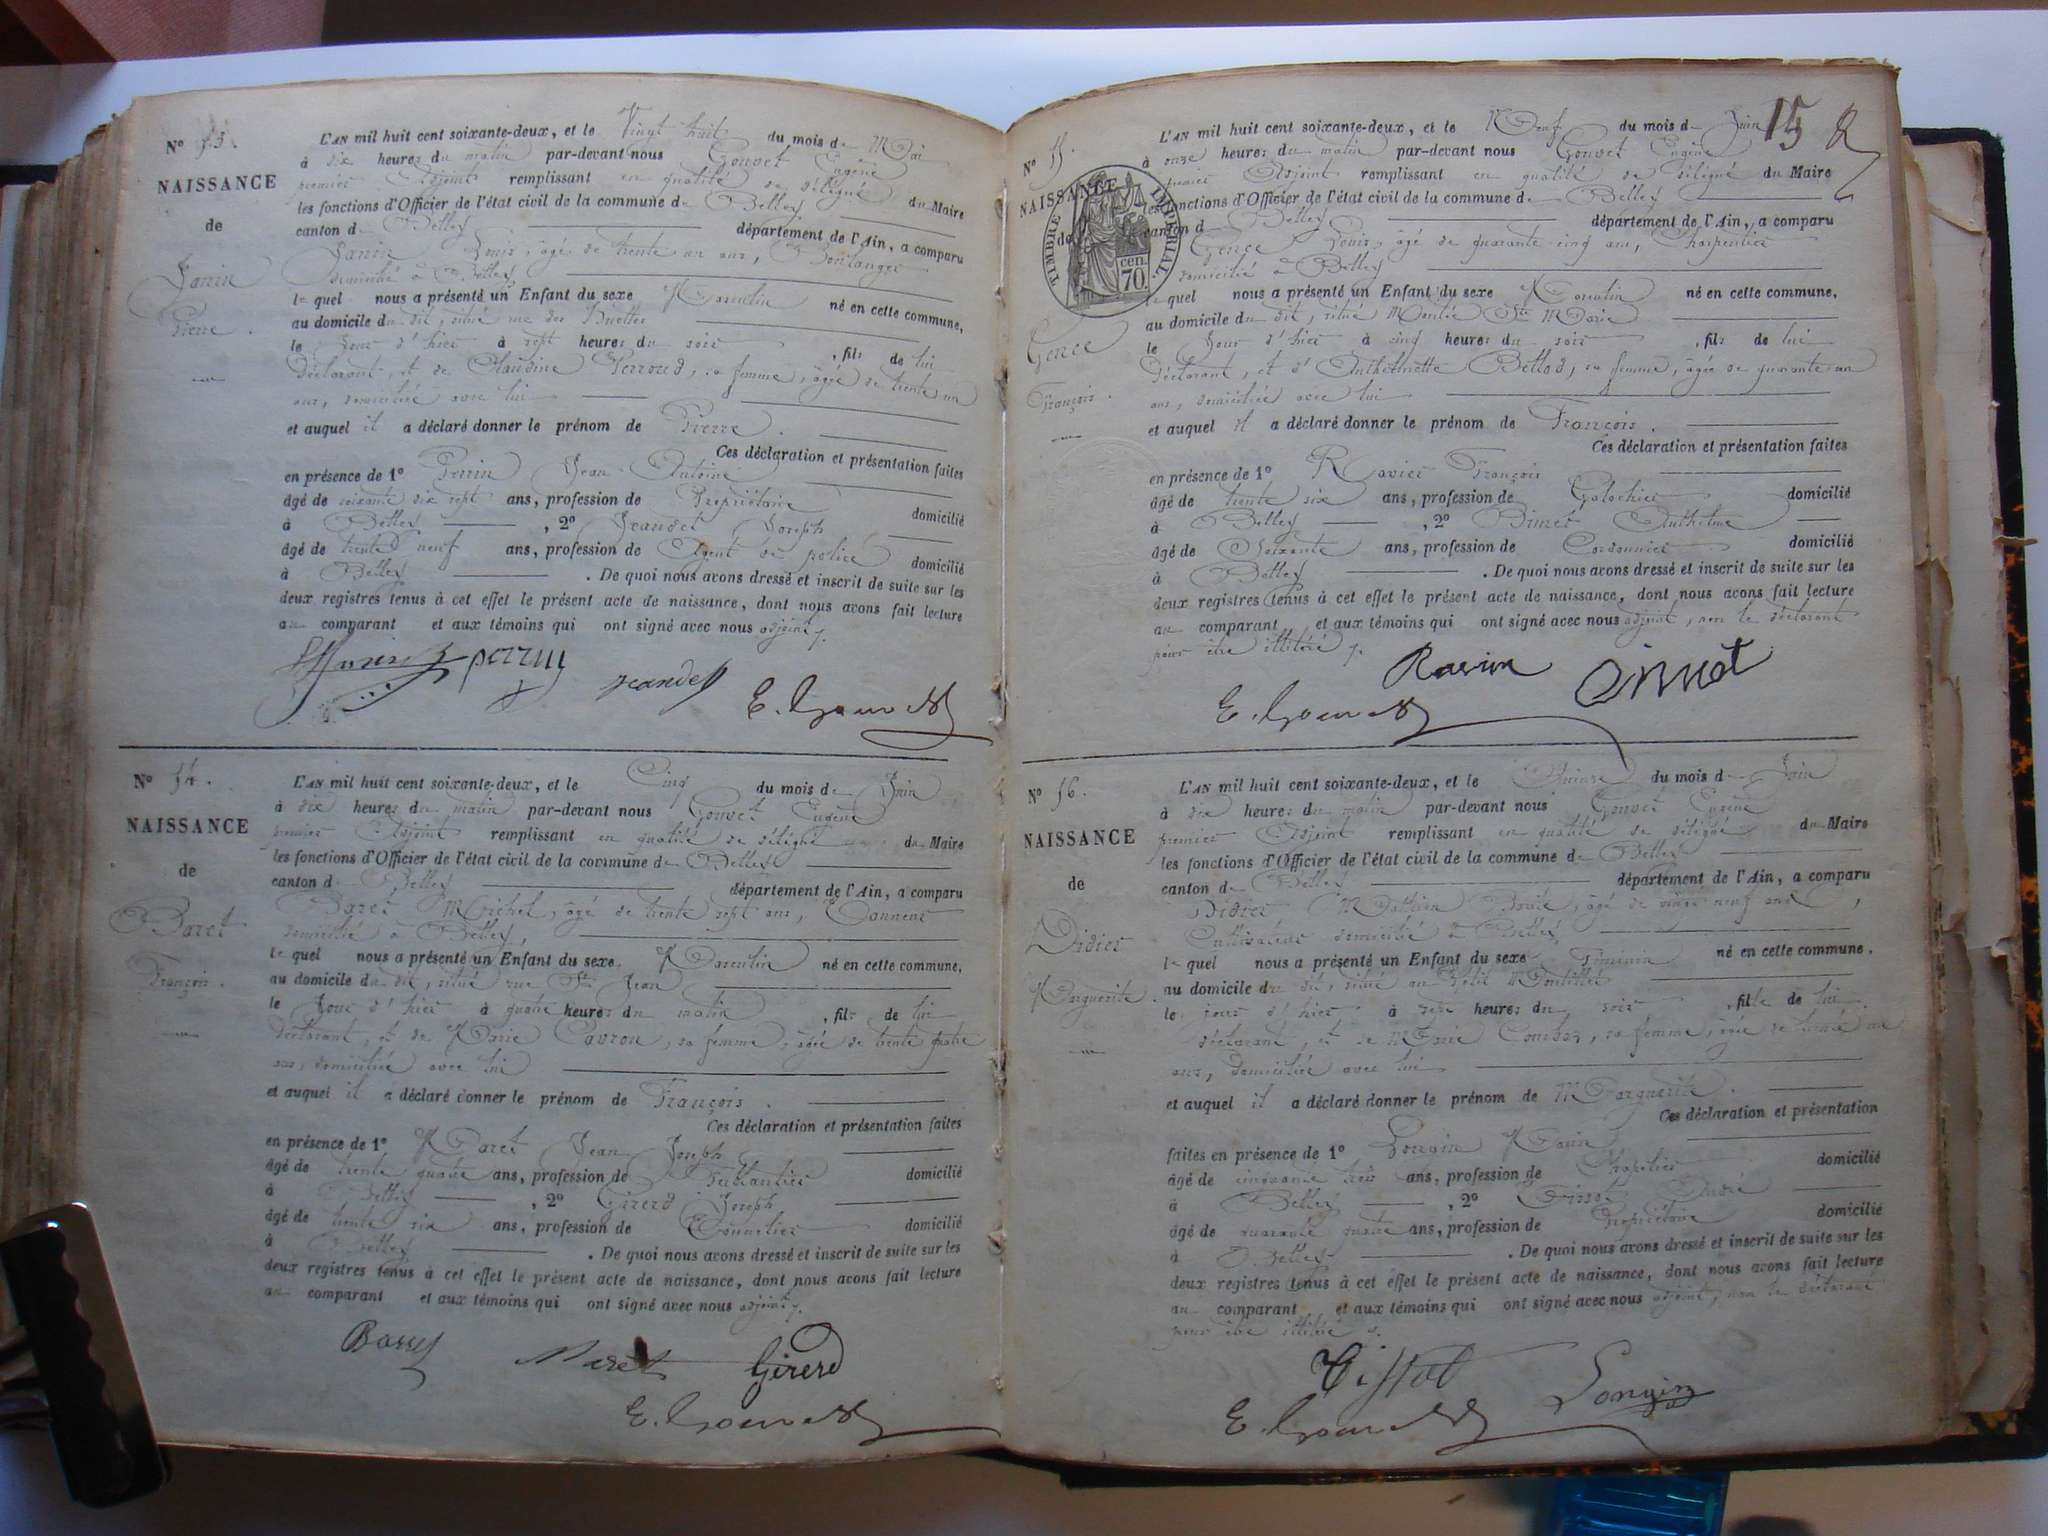 N° 53.
NAISSANCE
de
Janin
Pierre.
L'AN mil huit cent soixante-deux, et le Vingt huit du mois de Mai
à dix heures du matin par-devant nous Gouvet Eugène
premier Adjoint remplissant en qualité de délégué du Maire
les fonctions d'Officier de l'état civil de la commune de Belley
canton de Belley département de l'Ain, a comparu
Janin Louis, âgé de trente un ans, Boulanger
domicilié à Belley
lequel nous a présenté un Enfant du sexe Masculin né en cette commune,
au domicile du dit, situé rue des
le Jour d'hier à sept heures du soir, fils de lui
déclarant, et de Claudine Perroud, sa femme, âgée de trente un
ans, domiciliée avec lui
et auquel il a déclaré donner le prénom de Pierre.
Ces déclaration et présentation faites
en présence de 1° Perrin Jean Antoine
âgé de soixante dix sept ans, profession de Propriétaire domicilié
à Belley, 2° Jeandet Joseph
âgé de trente neuf ans, profession de Agent de police domicilié
à Belley. De quoi nous avons dressé et inscrit de suite sur les
deux registres tenus à cet effet le présent acte de naissance, dont nous avons fait lecture
au comparant et aux témoins qui ont signé avec nous adjoint.
perrin
jeandet
E. Gouvet
N° 54.
NAISSANCE
de
Baret
François.
L'AN mil huit cent soixante-deux, et le Cinq du mois de Juin
à dix heures du matin par-devant nous Gouvet Eugène
premier Adjoint remplissant en qualité de délégué du Maire
les fonctions d'Officier de l'état civil de la commune de Belley
canton de Belley département de l'Ain, a comparu
Baret Michel, âgé de trente sept ans, Tanneur
domicilié à Belley,
lequel nous a présenté un Enfant du sexe Masculin né en cette commune,
au domicile du dit, situé rue St Jean
le Jour d'hier à quatre heures du matin, fils de lui
déclarant, et de Marie Cavron, sa femme, âgée de trente quatre
ans, domiciliée avec lui
et auquel il a déclaré donner le prénom de François.
Ces déclaration et présentation faites
en présence de 1° Maret Jean Joseph
âgé de trente quatre ans, profession de Ferblantier domicilié
à Belley, 2° Girerd Joseph
âgé de trente six ans, profession de domicilié
à Belley. De quoi nous avons dressé et inscrit de suite sur les
deux registres tenus à cet effet le présent acte de naissance, dont nous avons fait lecture
au comparant et aux témoins qui ont signé avec nous adjoint.
Maret
Girerd
E. Gouvet
15
N° 55.
NAISSANCE
de
Gence
François.
TIMBRE IMPERIAL.
70 cen.
L'AN mil huit cent soixante-deux, et le Neuf du mois de Juin
à onze heures du matin par-devant nous Gouvet Eugène
premier Adjoint remplissant en qualité de délégué du Maire
les fonctions d'Officier de l'état civil de la commune de Belley
canton d Belley département de l'Ain, a comparu
Gence Louis, âgé de quarante cinq ans, Charpentier
domicilié à Belley
lequel nous a présenté un Enfant du sexe Masculin né en cette commune,
au domicile du dit, situé Montée Ste Marie
le Jour d'hier à cinq heures du soir, fils de lui
déclarant, et d'Anthelmette Bellod, sa femme, âgée de quarante un
ans, domiciliée avec lui
et auquel il a déclaré donner le prénom de François.
Ces déclaration et présentation faites
en présence de 1° Ravier François
âgé de trente six ans, profession de Galochier domicilié
à Belley, 2° Binet Anthelme
âgé de Soixante ans, profession de Cordonnier domicilié
à Belley. De quoi nous avons dressé et inscrit de suite sur les
deux registres tenus à cet effet le présent acte de naissance, dont nous avons fait lecture
au comparant et aux témoins qui ont signé avec nous adjoint, non le déclarant
pour être illitéré.
E. Gouvet
N° 56.
NAISSANCE
de
Didier
Marguerite.
L'AN mil huit cent soixante-deux, et le Quinze du mois de Juin
à dix heures du matin par-devant nous Gouvet Eugène
premier Adjoint remplissant en qualité de délégué du Maire
les fonctions d'Officier de l'état civil de la commune de Belley
canton de Belley département de l'Ain, a comparu
Didier Mathieu, âgé de vingt neuf ans,
Cultivateur domicilié à Belley
lequel nous a présenté un Enfant du sexe Féminin né en cette commune.
au domicile du dit, situé au Petit
le jour d'hier à sept heures du soir, fille de lui
déclarant, et de Marie Combaz, sa femme, âgée de trente un
ans, domiciliée avec lui
et auquel il a déclaré donner le prénom de Marguerite.
Ces déclaration et présentation
faites en présence de 1° Longin Marin
âgé de cinquante trois ans, profession de Chapelier domicilié
à Belley, 2° Tissot André
âgé de quarante quatre ans, profession de Propriétaire domicilié
à Belley. De quoi nous avons dressé et inscrit de suite sur les
deux registres tenus à cet effet le présent acte de naissance, dont nous avons fait lecture
au comparant et aux témoins qui ont signé avec nous adjoint, non le déclarant
pour être illitéré.
Tissot
Longin
E. Gouvet